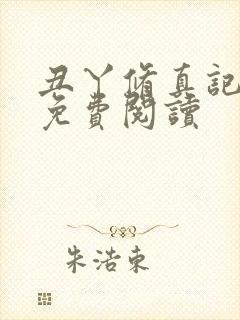 丑丫脩真記
免費閱讀
朱浩東